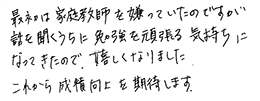 最初は家庭教師を嫌っていたのですが
話を聞くうちに勉強を頑張る気持ちに
なってきたので、嬉しくなりました。
これから成績向上を期待します。